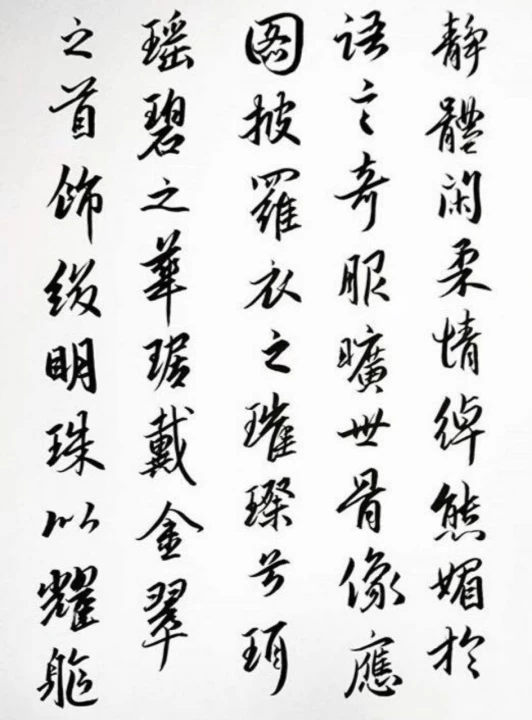 靜體閑柔情綽態媚於
語言奇服曠世骨像應
圖披羅衣之璀璨兮珥
瑤碧之華琚戴金翠
之首飾綴明珠以耀軀